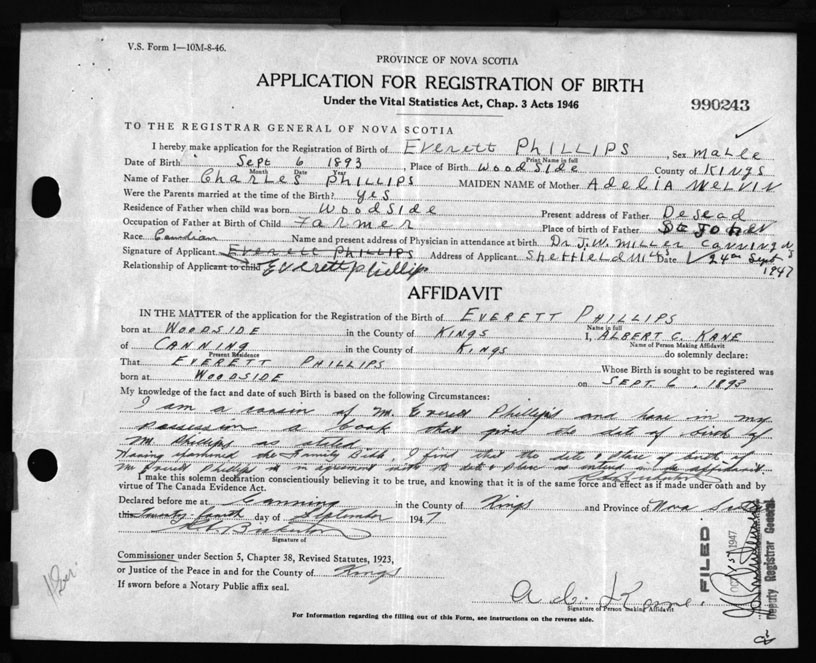 V.S. Form 1—10M-8-46.
PROVINCE OF NOVA SCOTIA
APPLICATION FOR REGISTRATION OF BIRTH
Under the Vital Statistics Act, Chap. 3 Acts 1946
990243
TO THE REGISTRAR GENERAL OF NOVA SCOTIA
I hereby make application for the Registration of Birth of Everett Phillips, Sex Malle
Print Name in full
Date of Birth Sept 6 1893, Place of Birth Woodside County of Kings
Month Date Year
Name of Father Charles Phillips MAIDEN NAME of Mother Adelia Melvin
Were the Parents married at the time of the Birth? yes
Residence of Father when child was born Woodside Present address of Father Desead
Occupation of Father at Birth of Child Farmer Place of birth of Father
Race Candian Name and present address of Physician in attendance at birth Dr J.W. Miller Canning NS
Signature of Applicant Everett Phillips Address of Applicant Sheffield Mills Date 24th Sept 1947
Relationship of Applicant to child Everett Phillips
AFFIDAVIT
IN THE MATTER of the application for the Registration of the Birth of Everett Phillips
Name in full
born at Woodside in the County of Kings I, Albert C. Kane
Name of Person Making Affidavit
of Canning in the County of Kings do solemnly declare:
Present Residence
That Everett Phillips Whose Birth is sought to be registered was
born at Woodside on Sept. 6, 1893
My knowledge of the fact and date of such Birth is based on the following Circumstances:
I am a cousin of Mr. Everett Phillips and have in my
possession a book that gives the date of birth of
Mr. Phillips as stated
Having examined the Family Bible, I find that the date & place of birth of
Mr Everett Phillips is in agreement with the date & place as entered in the affidavit.
I make this solemn declaration conscientiously believing it to be true, and knowing that it is of the same force and effect as if made under oath and by
virtue of The Canada Evidence Act.
Declared before me at Canning in the County of Kings and Province of Nova Scotia
this Twenty-fourth day of September 1947
Signature of
Commissioner under Section 5, Chapter 38, Revised Statutes, 1923,
or Justice of the Peace in and for the County of Kings
If sworn before a Notary Public affix seal.
A. C. Kane
Signature of Person Making Affidavit
FILED
1947
Deputy Registrar General
For Information regarding the filling out of this Form, see instructions on the reverse side.